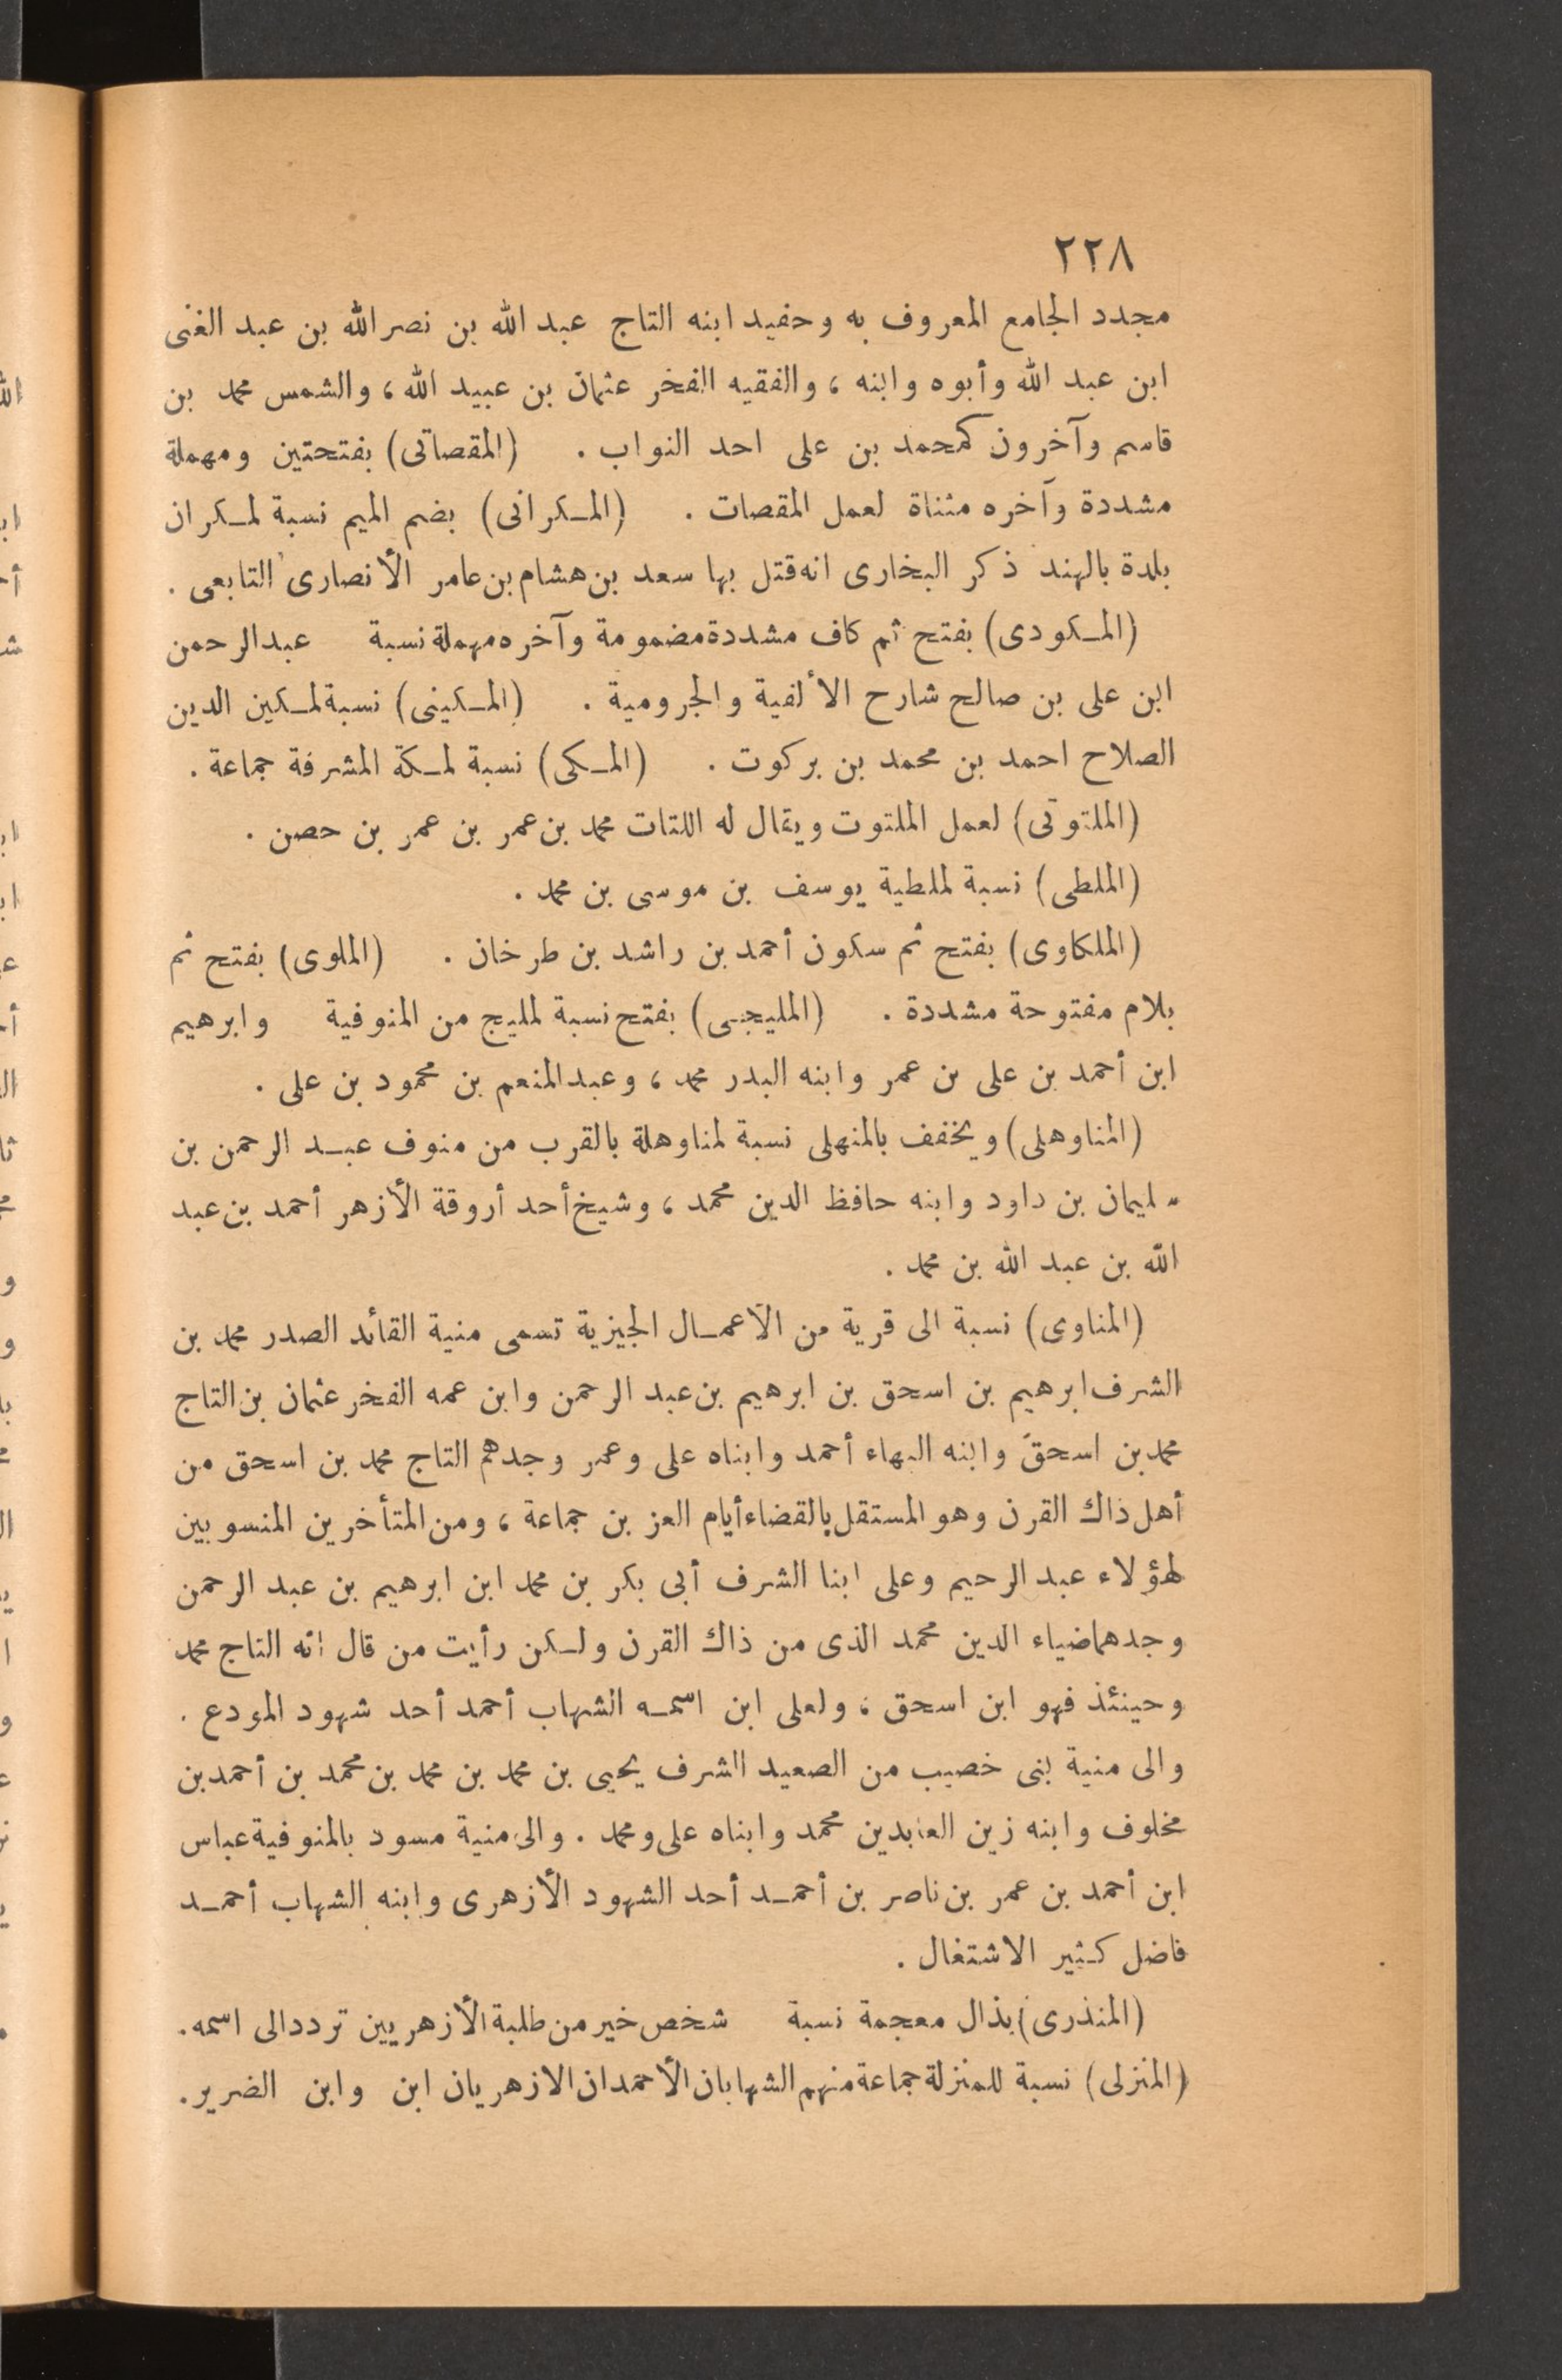 ٢٢٨
مجدد الجامع المعروف به وحفيد ابنه التاج عبد الله بن نصر الله بن عبد الغنى
ابن عبد الله وأبوه وابنه ، والفقيه الفخر عثمان بن عبيد الله ، والشمس محمد بن
قاسم وآخرون كمحمد بن على احد النواب . (المقصاتى) بفتحتين ومهملة
مشددة وآخره مثناة لعمل المقصات . (المكرانى) بضم الميم نسبة لمكران
بلدة بالهند ذكر البخارى انه قتل بها سعد بن هشام بن عامر الأنصارى التابعى .
(المكودى) بفتح ثم كاف مشددة مضمومة وآخره مهملة نسبة عبد الرحمن
ابن على بن صالح شارح الألفية والجرومية . (المكينى) نسبة لمكين الدين
الصلاح احمد بن محمد بن بركوت . (المكى) نسبة لمكة المشرفة جماعة .
(الملتوتى) لعمل الملتوت ويقال له اللتات محمد بن عمر بن عمر بن حصن .
(الملطى) نسبة لملطية يوسف بن موسى بن محمد .
(الملكاوى) بفتح ثم سكون أحمد بن راشد بن طرخان . (الملوى) بفتح ثم
بلام مفتوحة مشددة . (المليجى) بفتح نسبة لمليج من المنوفية وابرهيم
ابن أحمد بن على بن عمر وابنه البدر محمد ، وعبد المنعم بن محمود بن على .
(المناوهلى) ويخفف بالمنهلى نسبة لمناوهلة بالقرب من منوف عبد الرحمن بن
سليمان بن داود وابنه حافظ الدين محمد ، وشيخ أحد أروقة الأزهر أحمد بن عبد
الله بن عبد الله بن محمد .
(المناوى) نسبة الى قرية من الأعمال الجيزية تسمى منية القائد الصدر محمد بن
الشرف ابرهيم بن اسحق بن ابرهيم بن عبد الرحمن وابن عمه الفخر عثمان بن التاج
محمد بن اسحق وابنه البهاء أحمد وابناه على وعمر وجدهم التاج محمد بن اسحق من
أهل ذاك القرن وهو المستقل بالقضاء أيام العز بن جماعة ، ومن المتأخرين المنسوبين
لهؤلاء عبد الرحيم وعلى ابنا الشرف أبى بكر بن محمد ابن ابرهيم بن عبد الرحمن
وجدهما ضياء الدين محمد الذى من ذاك القرن ولكن رأيت من قال انه التاج محمد
وحينئذ فهو ابن اسحق ، ولعلى ابن اسمه الشهاب أحمد أحد شهود المودع .
والى منية بنى خصيب من الصعيد الشرف يحيى بن محمد بن محمد بن محمد بن أحمد بن
مخلوف وابنه زين العابدين محمد وابناه على ومحمد . والى منية مسود بالمنوفية عباس
ابن أحمد بن عمر بن ناصر بن أحمد أحد الشهود الأزهرى وابنه الشهاب أحمد
فاضل كثير الاشتغال .
(المنذرى) بذال معجمة نسبة شخص خير من طلبة الأزهريين تردد الى اسمه .
(المنزلى) نسبة للمنزلة جماعة منهم الشهابان الأحمدان الازهريان ابن وابن الضرير .